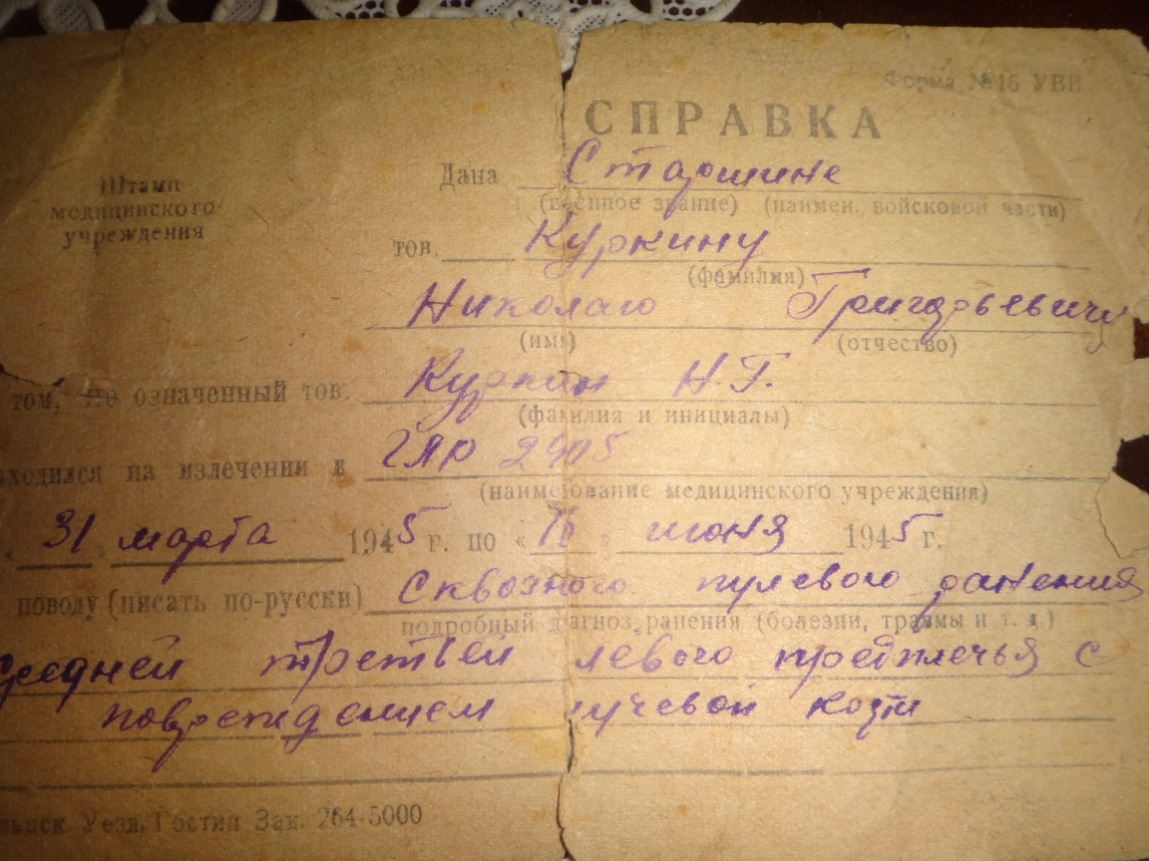 Форма № 16 УВВ
СПРАВКА
Штамп
медицинского
учреждения
Дана Старшине
(военное звание) (наимен. войсковой части)
тов. Куркину
(фамилия)
Николаю Григорьевичу
(имя) (отчество)
том, что означенный тов. Куркин Н.Г.
(фамилия и инициалы)
находился на излечении в ГЛР
(наименование медицинского учреждения)
« 31 » марта 1945 г. по « » июня 1945 г.
поводу (писать по-русски) Сквозного пулевого ранения
подробный диагноз, ранения (болезни, травмы и т. д.)
средней третьей левого предплечья с
повреждением лучевой кости
Уезд. Гостип Зак. 264-5000